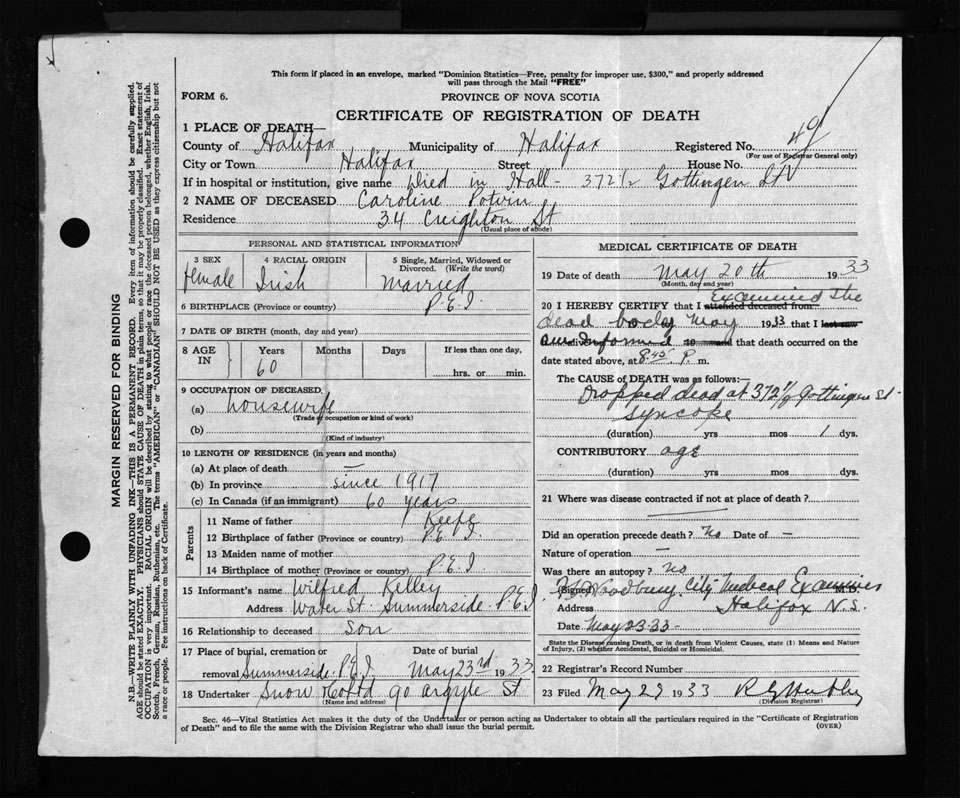 This form if placed in an envelope, marked "Dominion Statistics—Free, penalty for improper use, $300," and properly addressed
will pass through the Mail "FREE"
FORM 6.
PROVINCE OF NOVA SCOTIA
CERTIFICATE OF REGISTRATION OF DEATH
1 PLACE OF DEATH—
County of Halifax Municipality of Halifax Registered No. 49
(For use of Registrar General only)
City or Town Halifax Street House No.
If in hospital or institution, give name Died in Hall - 372 1/2 Gottingen St
2 NAME OF DECEASED Caroline Potvin
Residence 34 Creighton St
(Usual place of abode)
PERSONAL AND STATISTICAL INFORMATION
3 SEX 4 RACIAL ORIGIN 5 Single, Married, Widowed or
Divorced. (Write the word)
Female Irish Married
6 BIRTHPLACE (Province or country) P.E.I.
7 DATE OF BIRTH (month, day and year)
8 AGE IN Years Months Days If less than one day,
60 hrs. or min.
9 OCCUPATION OF DECEASED
(a) housewife
(Trade or occupation or kind of work)
(b)
(Kind of industry)
10 LENGTH OF RESIDENCE (in years and months)
(a) At place of death —
(b) In province since 1917
(c) In Canada (if an immigrant) 60 years
Parents
11 Name of father Keefe
12 Birthplace of father (Province or country) P.E.I.
13 Maiden name of mother
14 Birthplace of mother (Province or country) P.E.I.
15 Informant's name Wilfred Kelley
Address Water St. Summerside P.E.I.
16 Relationship to deceased Son
17 Place of burial, cremation or Date of burial
removal Summerside P.E.I. May 23rd 1933
18 Undertaker Snow Co Ltd 90 Argyle St
(Name and address)
MEDICAL CERTIFICATE OF DEATH
19 Date of death May 20th 1933
(Month, day and year)
20 I HEREBY CERTIFY that I attended deceased from Examined the
dead body May 1933 that I last saw
am Informed that death occurred on the
date stated above, at 8.45 P. m.
The CAUSE of DEATH was as follows:—
Dropped dead at 372 1/2 Gottingen St -
Syncope
(duration) yrs mos 1 dys.
CONTRIBUTORY age
(duration) yrs mos dys.
21 Where was disease contracted if not at place of death?
Did an operation precede death? No Date of —
Nature of operation —
Was there an autopsy? No
(Signed) Woodbury City Medical Examiner M.D.
Address Halifax N.S.
Date May 23-33-
State the Disease causing Death, or in death from Violent Causes, state (1) Means and Nature
of Injury, (2) whether Accidental, Suicidal or Homicidal.
22 Registrar's Record Number
23 Filed May 29 1933
(Division Registrar)
Sec. 46—Vital Statistics Act makes it the duty of the Undertaker or person acting as Undertaker to obtain all the particulars required in the "Certificate of Registration
of Death" and to file the same with the Division Registrar who shall issue the burial permit. (OVER)
MARGIN RESERVED FOR BINDING
N.B.—WRITE PLAINLY WITH UNFADING INK—THIS IS A PERMANENT RECORD. Every item of information should be carefully supplied.
AGE should be stated EXACTLY. PHYSICIANS should STATE CAUSE OF DEATH in plain terms, so that it may be properly classified. Exact statement of
OCCUPATION is very important. RACIAL ORIGIN will be described by stating to what people or race the deceased person belonged, whether English, Irish,
Scotch, French, German, Russian, Ruthenian, etc. The terms "AMERICAN" or "CANADIAN" SHOULD NOT BE USED as they express citizenship but not
a race or people. Fee instructions on back of Certificate.